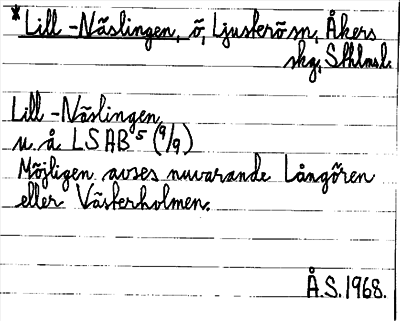 *Lill-Näslingen, ö, Ljusterö sn, Åkers
skg, Sthlms l.
Lill-Näslingen
u. å. LSAB5 (9/9)
Möjligen avses nuvarande Långören
eller Västerholmen.
Å.S. 1968.